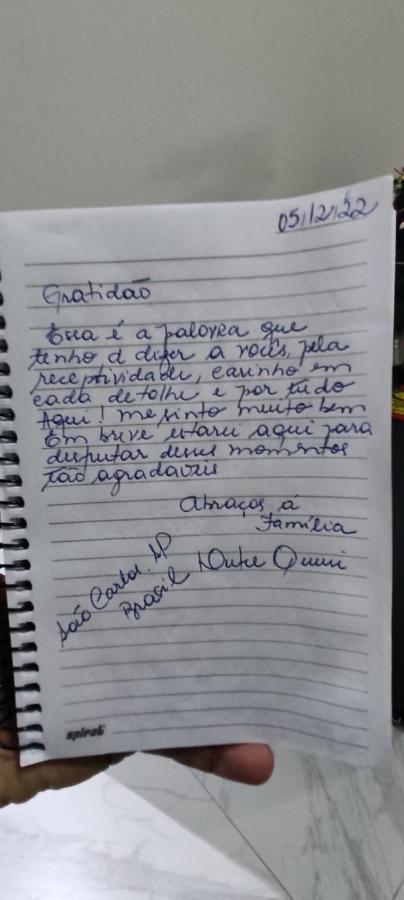 05/12/22
Gratidão
Essa é a palavra que
tenho d dizer a vocês, pela
receptividade, carinho em
cada detalhe e por tudo
Aqui! me sinto muito bem
Em breve estarei aqui para
disfrutar desses momentos
tão agradaveis
Abraços, á
Família
São Carlos. SP
Brasil
spiral